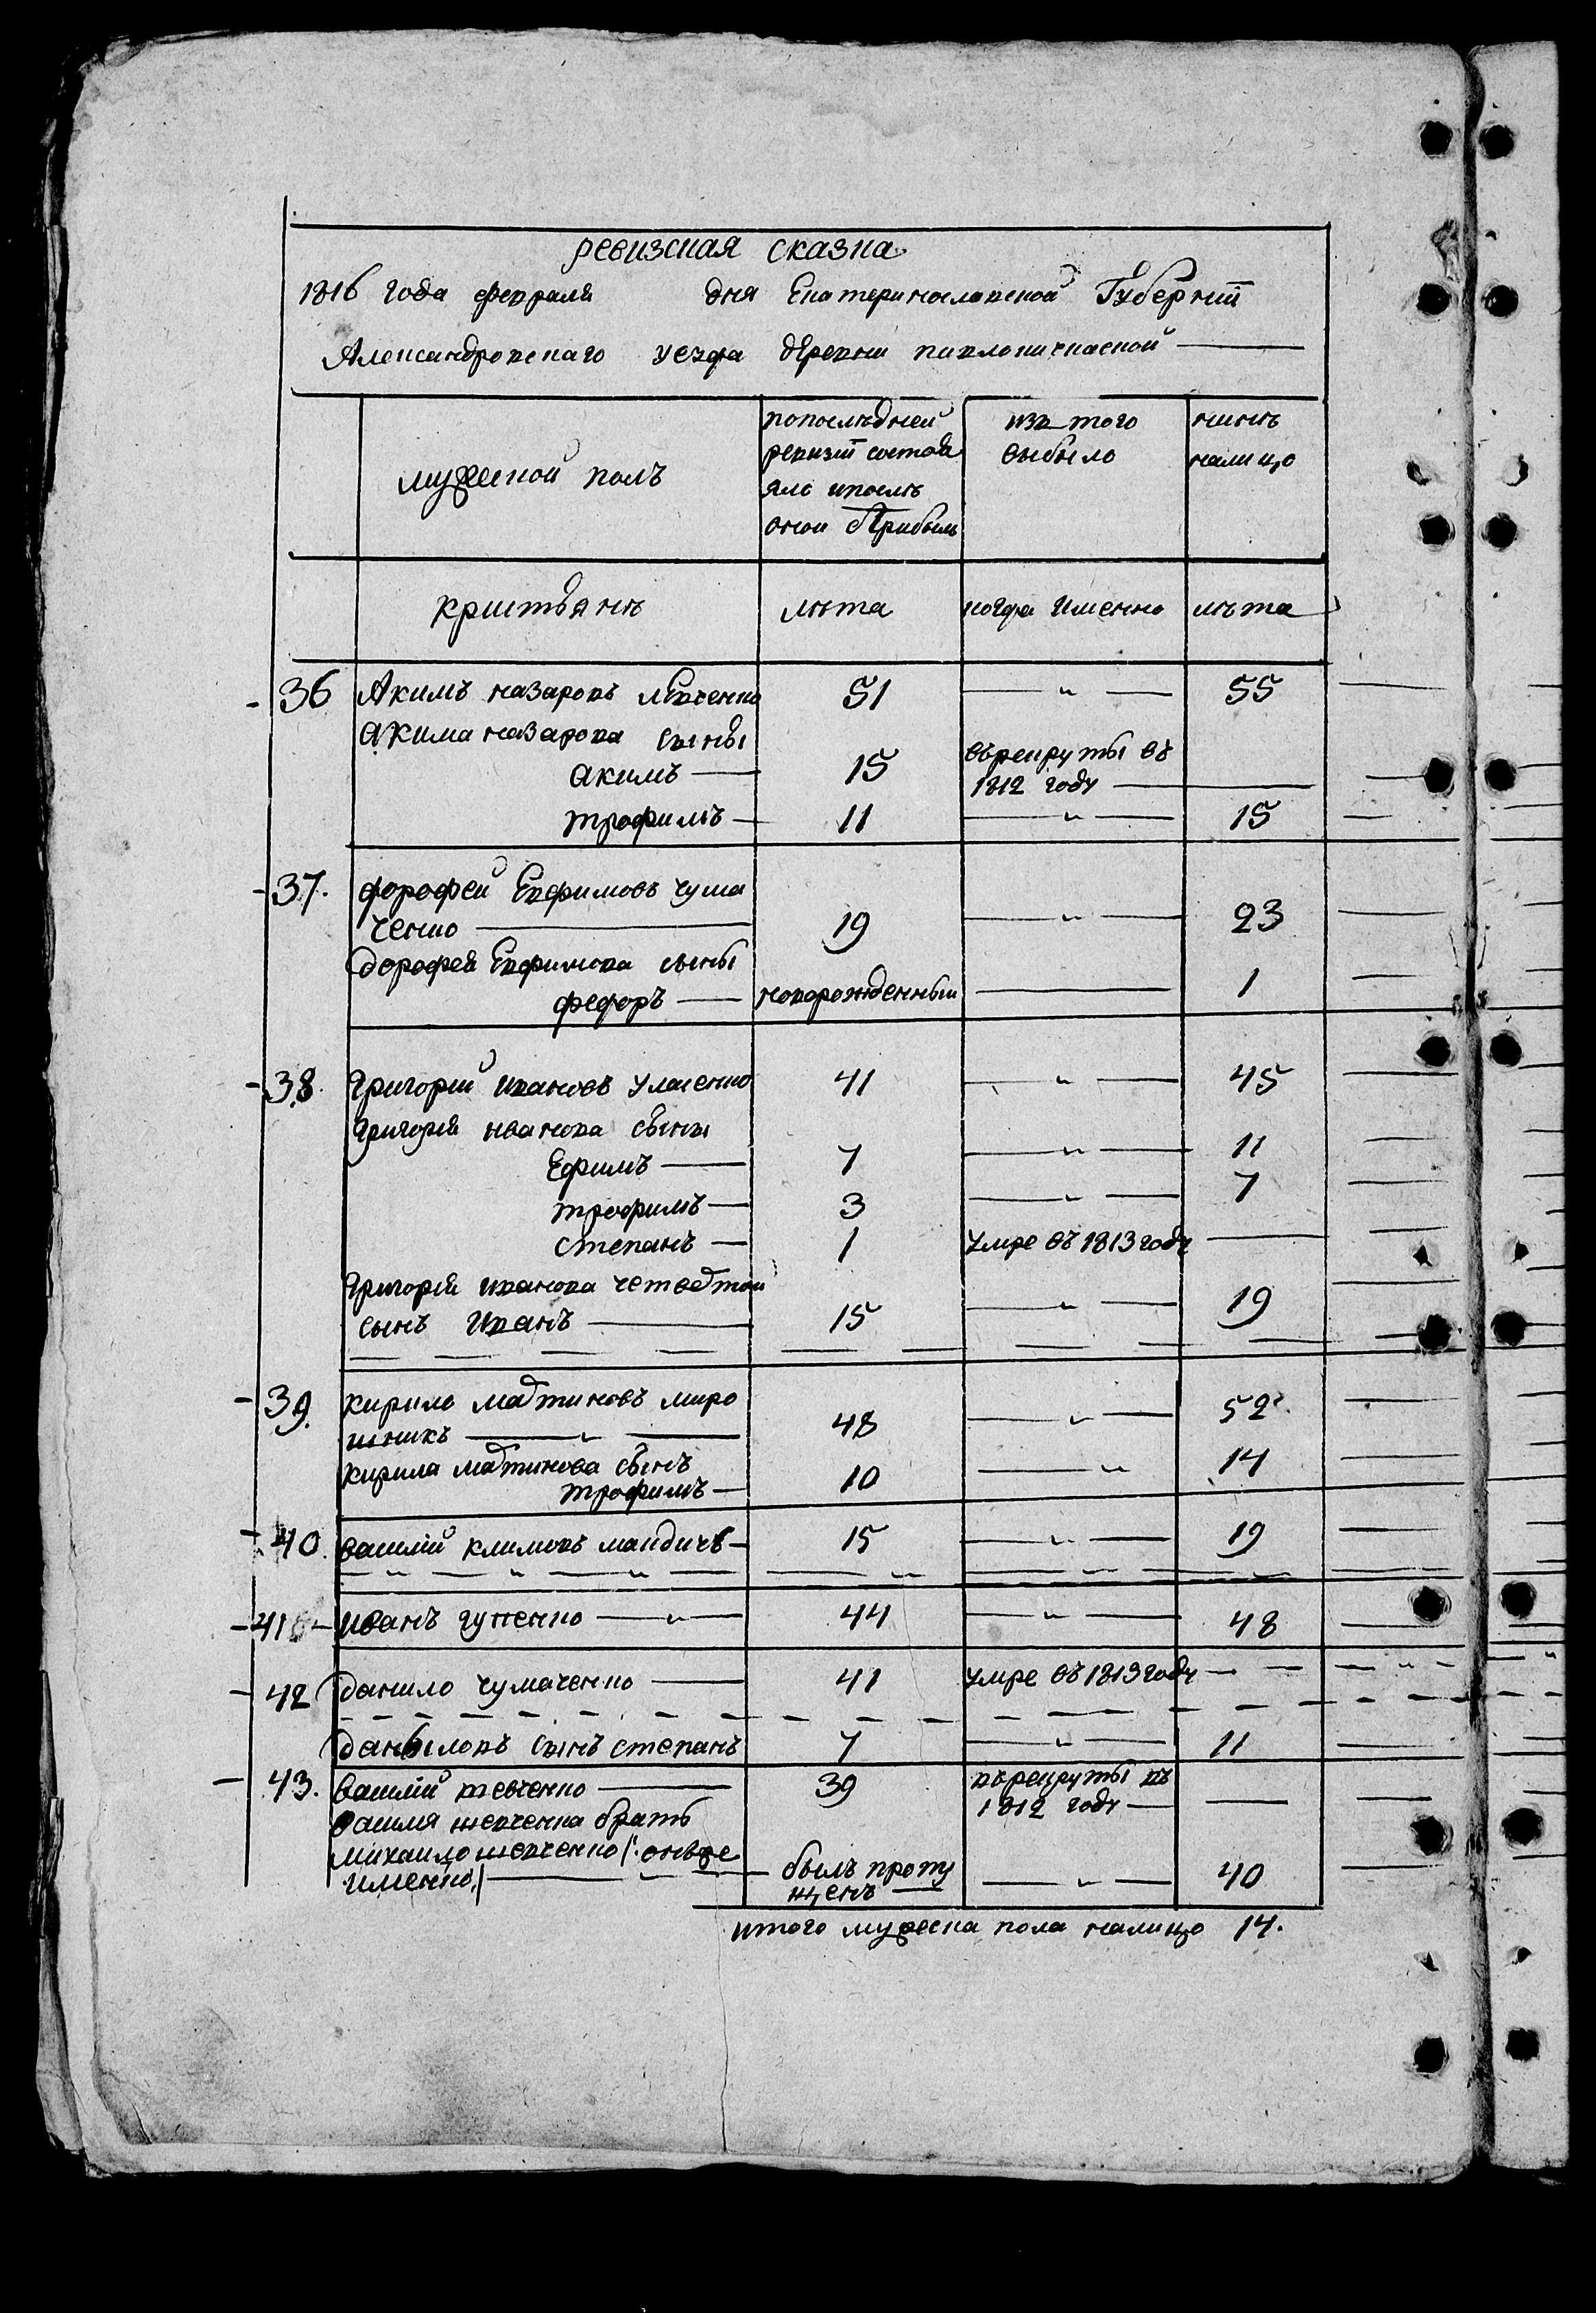 ревизская сказка
1816 года февраля дня Екатеринославской Губернии
Александровскаго уезда деревни
мужеской полъ
попоследней ревизiи состояло и после оной Прибыло
изъ того выбыло
ныне налицо
крестьянъ
лѣта
когда Именно
лѣта
36 Акимъ назаровъ левченко 51 — " — 55
Акима назарова сыны
акимъ — 15 въ рекруты въ 1812 году —
трофимъ — 11 — " — 15
37. дорофей Евфимовъ чума
ченко — 19 — " — 23
дорофея Евфимова сыны
федоръ — новорожденный — 1
38. григорий ивановъ 41 — " — 45
григорья иванова сыны
Ефимъ — 7 — " — 11
трофимъ — 3 — " — 7
степанъ — 1 умре въ 1813 году —
григорья иванова четвертой
сынъ иванъ — 15 — " — 19
39. кирило мартиновъ миро
шникъ — " — 48 — " — 52
кирила мартинова сынъ
трофимъ — 10 — " 14
40. василiй климовъ 15 — " — 19
41 иванъ — " — 44 — " — 48
42 данило чумаченко — 41 умре въ 1813 году —
даниловъ сынъ степанъ 7 — " — 11
43. василiй шевченко — 39 въ рекруты въ 1812 году — —
василя шевченка братъ
михаило шевченко /: онъже
именно :/ — " — былъ пропу
щенъ — — " — 40
итого мужеска пола налицо 14.